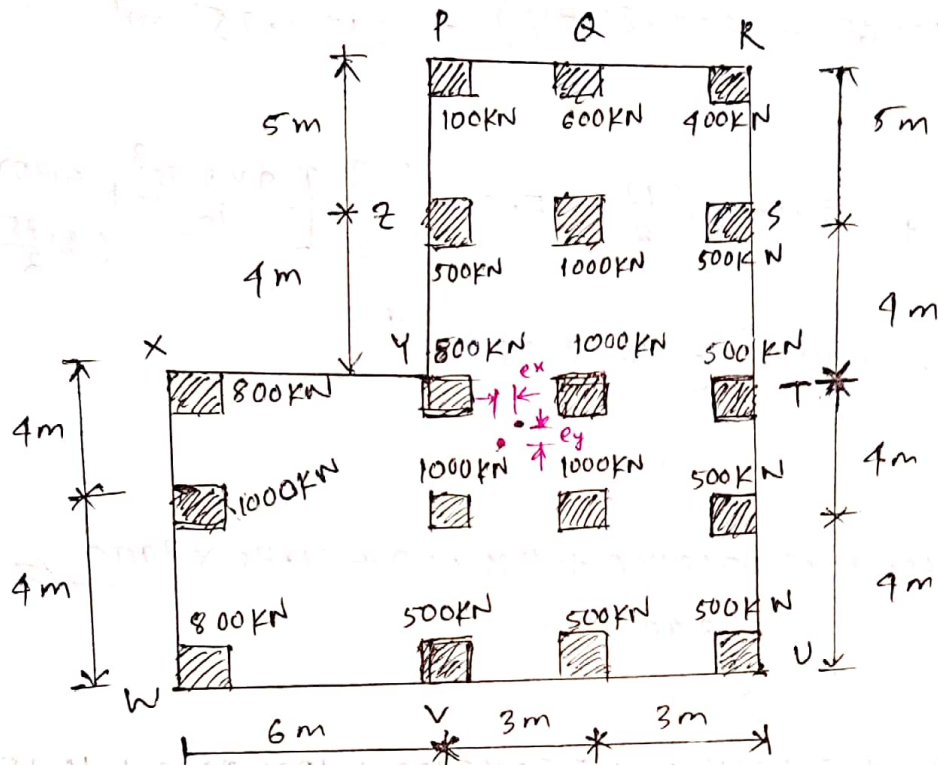 P Q R
5m 100KN 600KN 400KN 5m
Z S
4m 500KN 1000KN 500KN
4m
X Y 800KN 1000KN 500KN
800KN ex T
4m ey
1000KN 1000KN 1000KN 500KN 4m
4m 4m
800KN 500KN 500KN 500KN
W U
V
6m 3m 3m